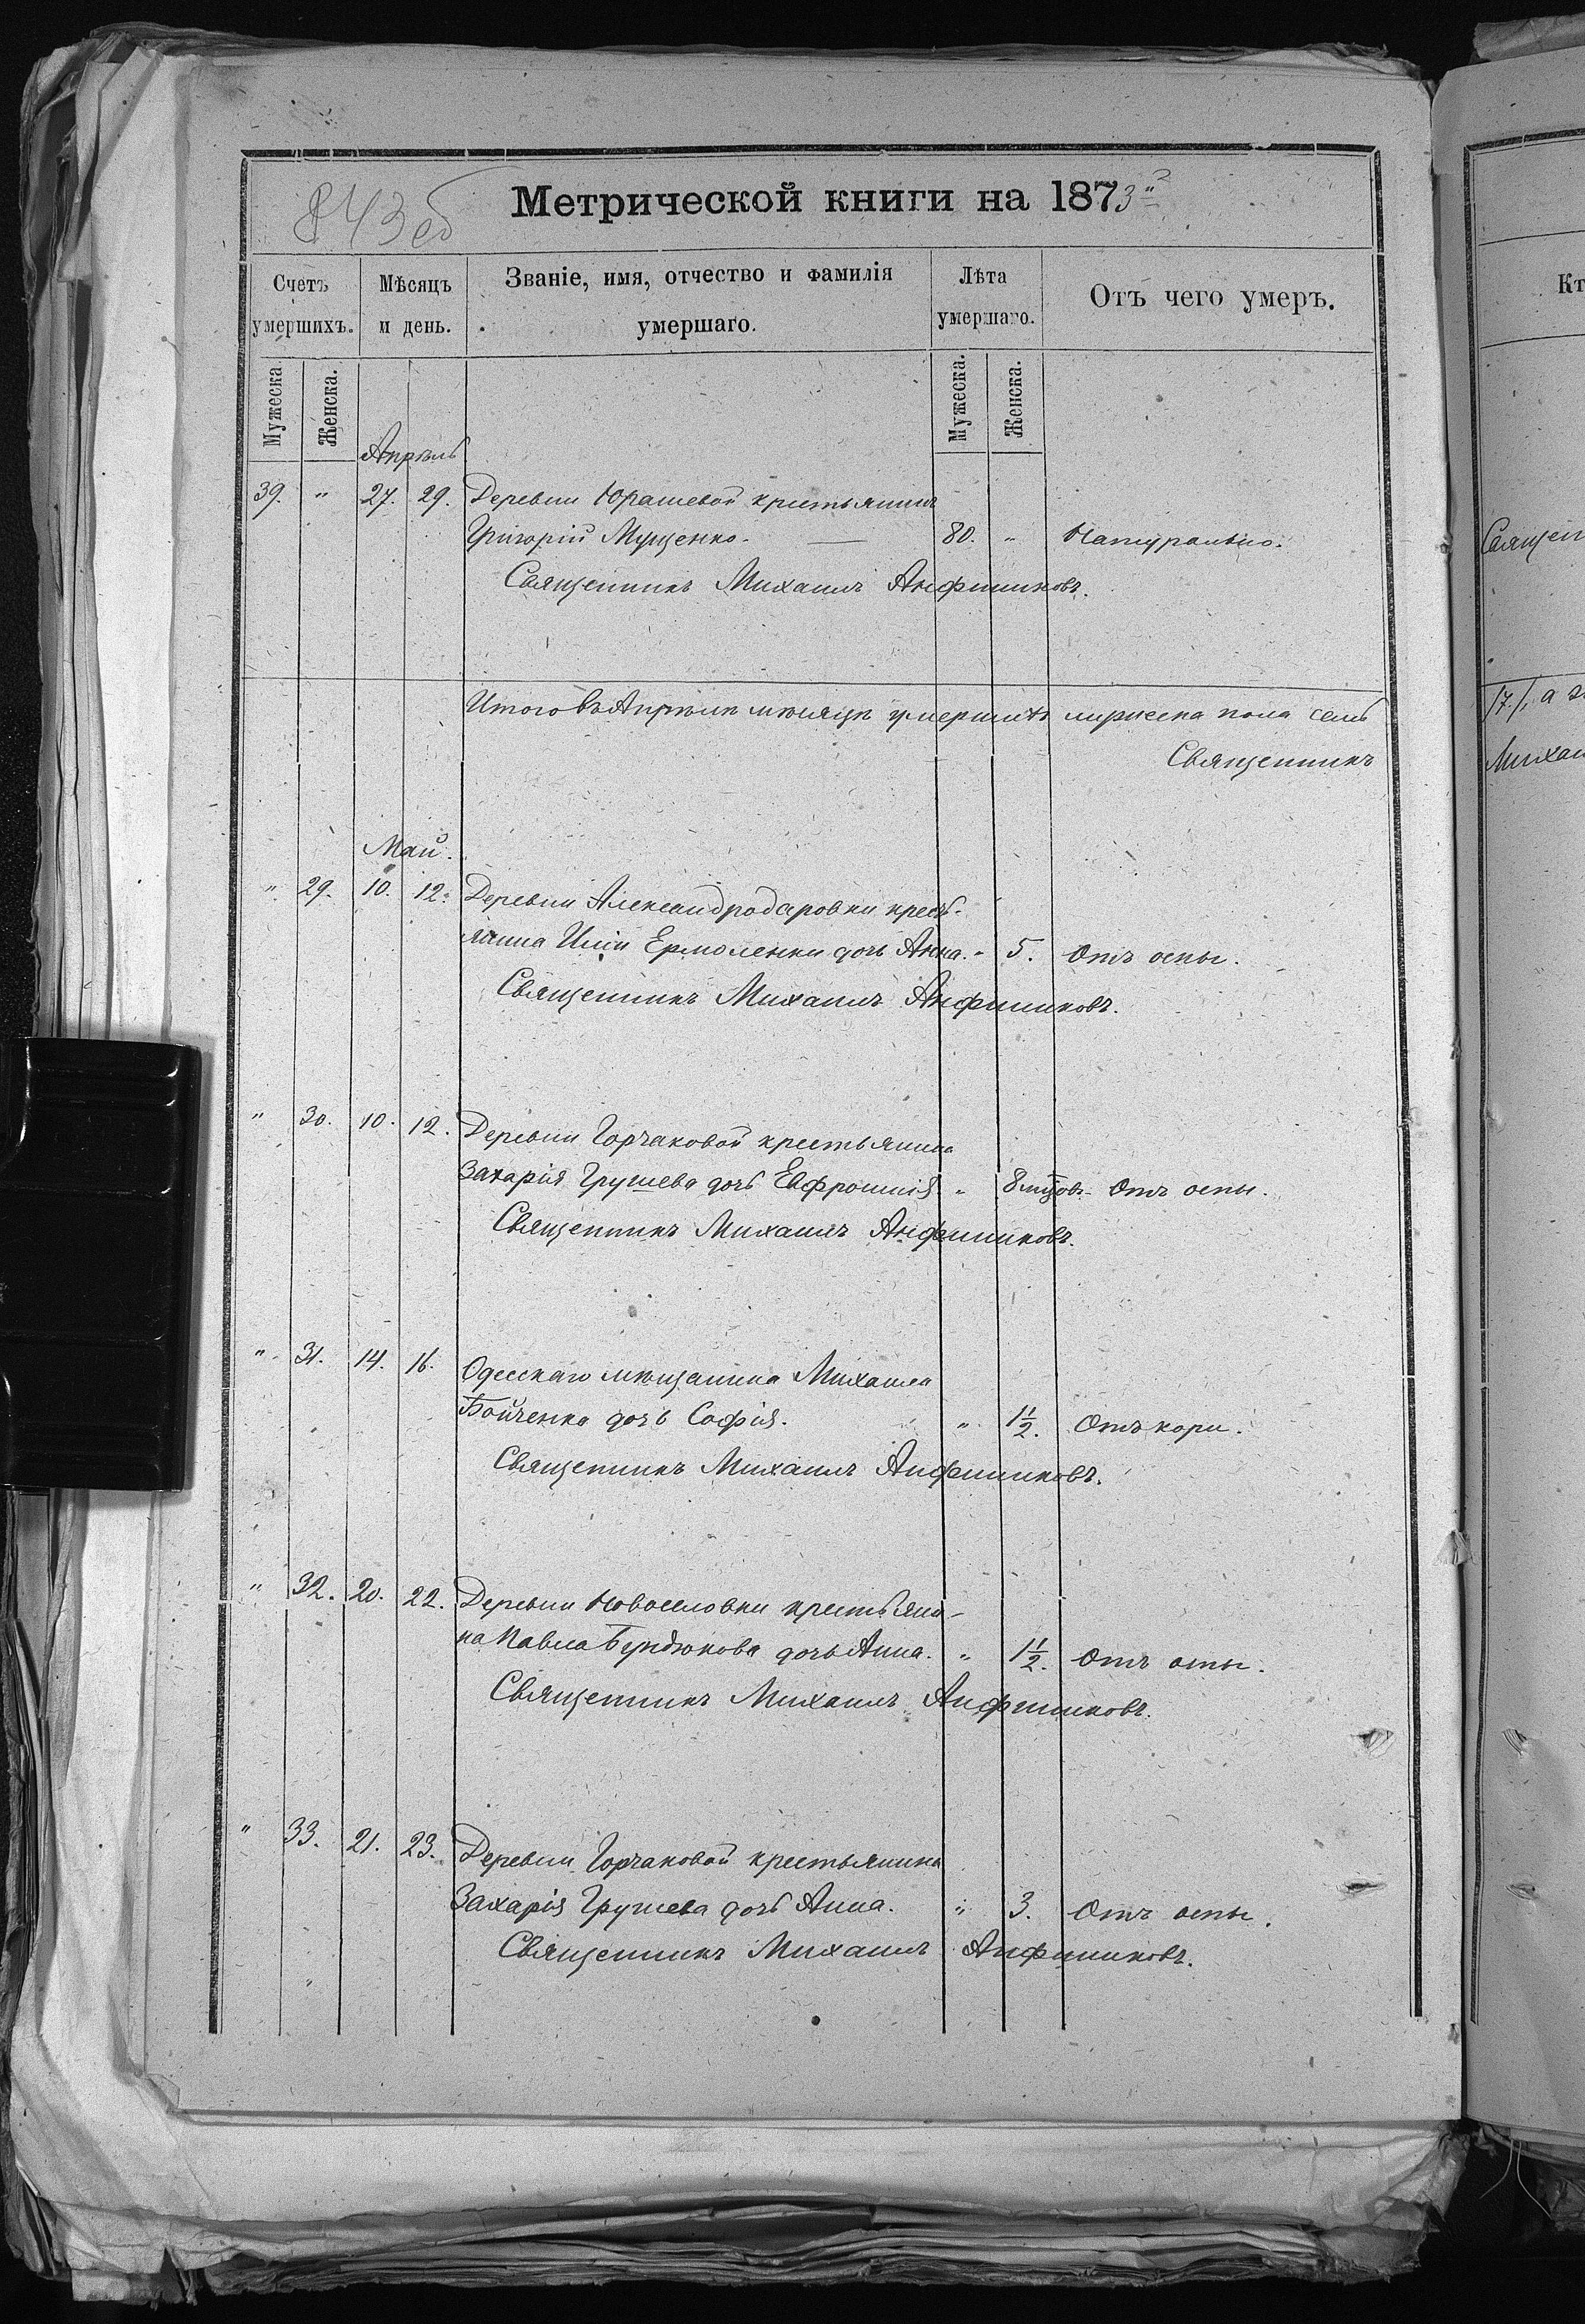 843 об
Метрической книги на 1873й
Счетъ умершихъ.
Мѣсяцъ и день.
Званіе, имя, отчество и фамилія умершаго.
Лѣта умершаго.
Отъ чего умеръ.
Мужеска. Женска. Мужеска. Женска.
Апрѣль
39. " 27. 29. Деревни Юрашевой крестьянинъ
Григорій Мущенко. — 80. " Натурально.
Священникъ Михаилъ Анфиниковъ.
Итого въ Апрѣлѣ мѣсяцѣ умершихъ мужеска пола семь
Священникъ
Май.
" 29. 10. 12. Деревни Александродаровки кресть-
янина Иліи Ермоленки дочь Анна. " 5. Отъ оспы.
Священникъ Михаилъ Анфиниковъ.
" 30. 10. 12. Деревни Горчаковой крестьянина
Захарія Грушева дочь Евфросинія " 8 мцовъ. Отъ оспы.
Священникъ Михаилъ Анфиниковъ.
" 31. 14. 16. Одесскаго мѣщанина Михаила
Бойченка дочь Софія. " 1 1/2. Отъ кори.
Священникъ Михаилъ Анфиниковъ.
" 32. 20. 22. Деревни Новоселовки крестьяни-
на Павла Бундюкова дочь Анна. " 1 1/2. Отъ оспы.
Священникъ Михаилъ Анфиниковъ.
" 33. 21. 23. Деревни Горчаковой крестьянина
Захарія Грушева дочь Анна. " 3. Отъ оспы.
Священникъ Михаилъ Анфиниковъ.
Кт
Священ
17/, а
Михаи